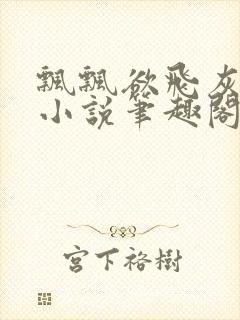 飄飄欲飛灰
小說筆趣閣
宮下裕樹